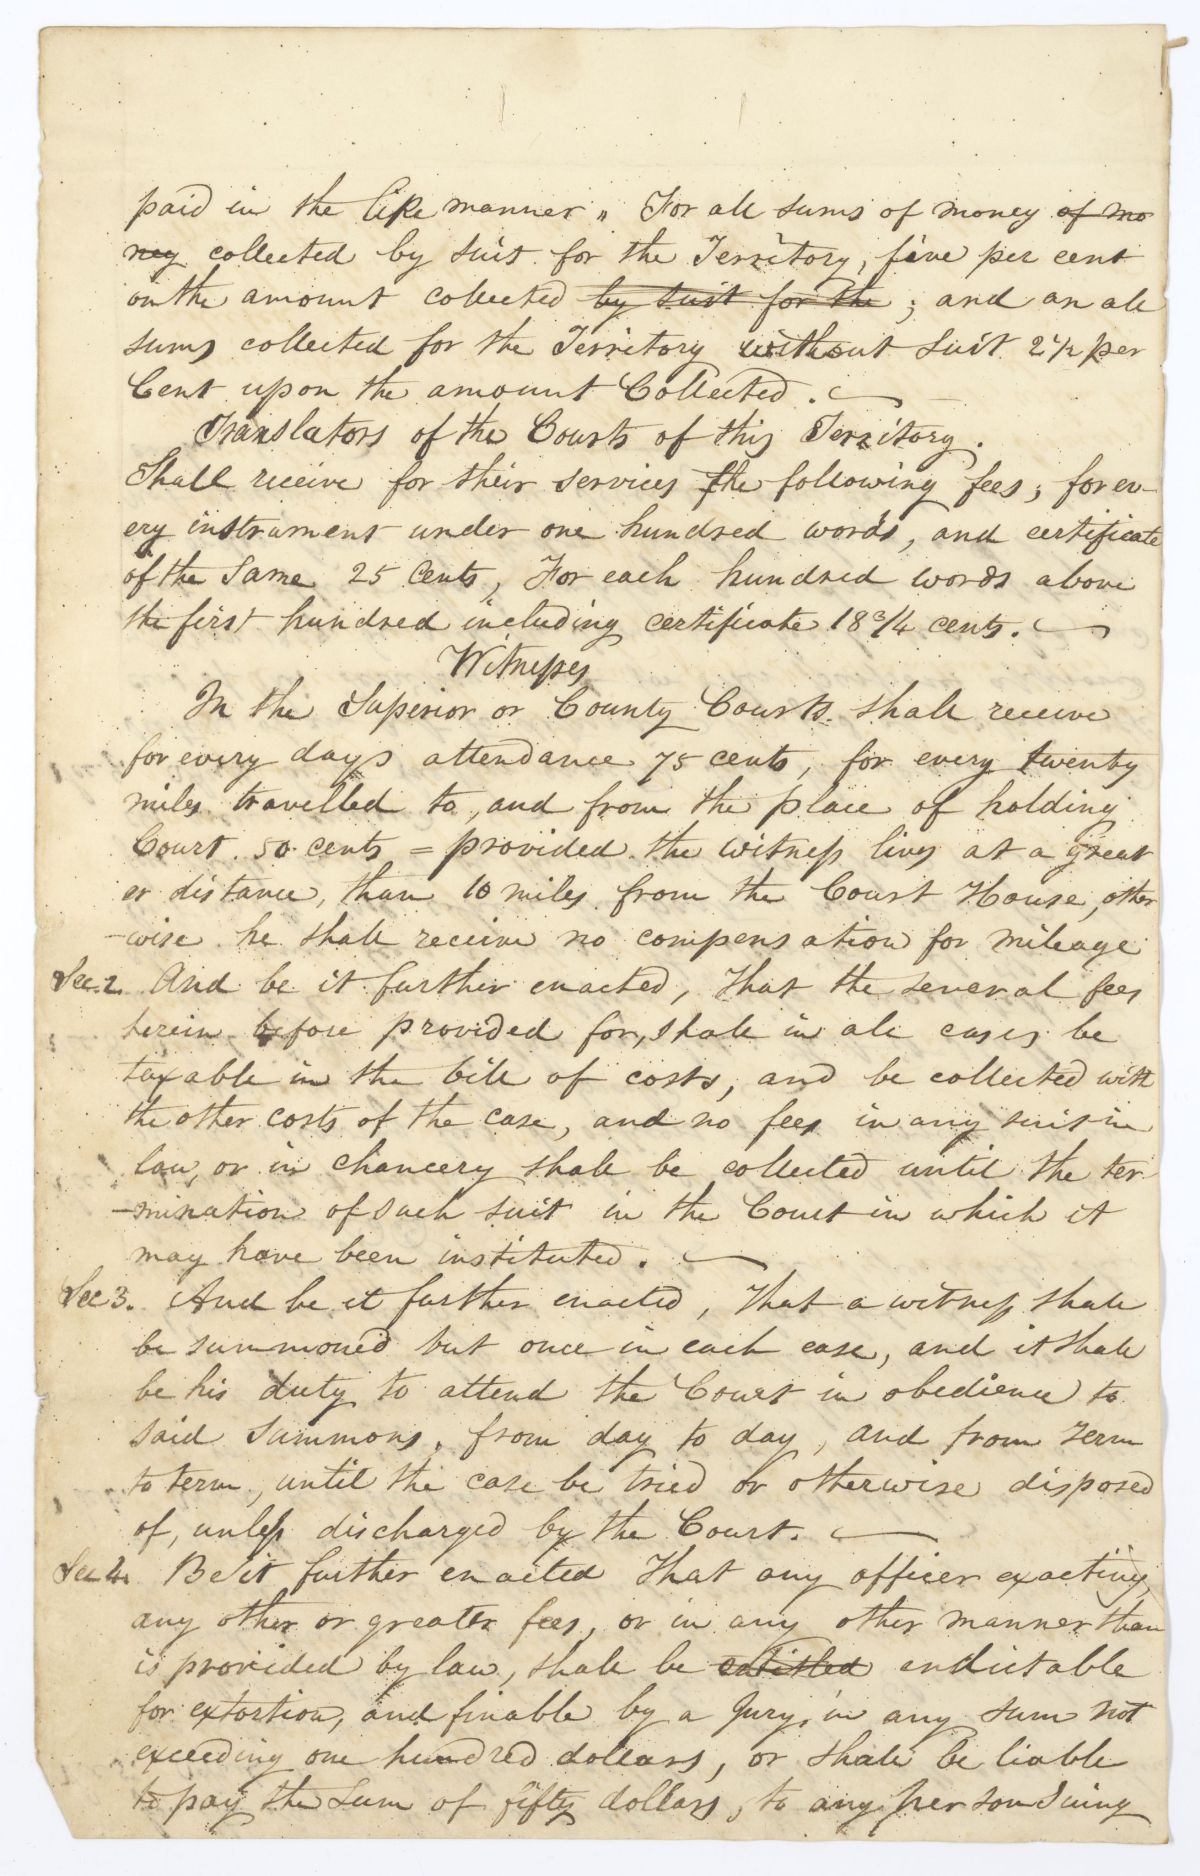 paid in the like manner „ For all sums of money of mo
ney collected by suit for the Territory, five per cent
on the amount collected by suit for the ; and on all
sums collected for the Territory without suit 2½ per
Cent upon the amount Collected.
Translators of the Courts of this Territory.
Shall receive for their services the following fees; for ev-
ery instrument under one hundred words, and certificate
of the Same 25 Cents, For each hundred words above
the first hundred including certificate 18¾ cents.
Witnesses
In the Superior or County Courts shall receive
for every days attendance 75 cents, for every twenty
miles travelled to, and from the place of holding
Court 50 cents = provided the witness lives at a great
er distance, than 10 miles from the Court House, other
-wise he shall receive no compensation for mileage
Sec. 2. And be it further enacted, That the several fees
herein before provided for, shall in all cases be
taxable in the bill of costs, and be collected with
the other costs of the case, and no fees in any suit in
law, or in chancery shall be collected until the ter
-mination of such suit in the Court in which it
may have been instituted.
Sec 3. And be it further enacted, That a witness shall
be summoned but once in each case, and it shall
be his duty to attend the Court in obedience to
said Summons, from day to day, and from term
to term, until the case be tried or otherwise disposed
of, unless discharged by the Court.
Sec 4. Be it further enacted That any officer exacting,
any other or greater fees, or in any other manner than
is provided by law, shall be entitled endictable
for extortion, and finable by a Jury, in any sum not
exceeding one hundred dollars, or shall be liable
to pay the Sum of fifty dollars, to any person Suing